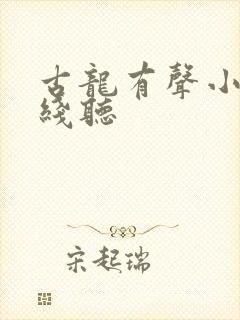 古龍有聲小
綫聽
宋起瑞